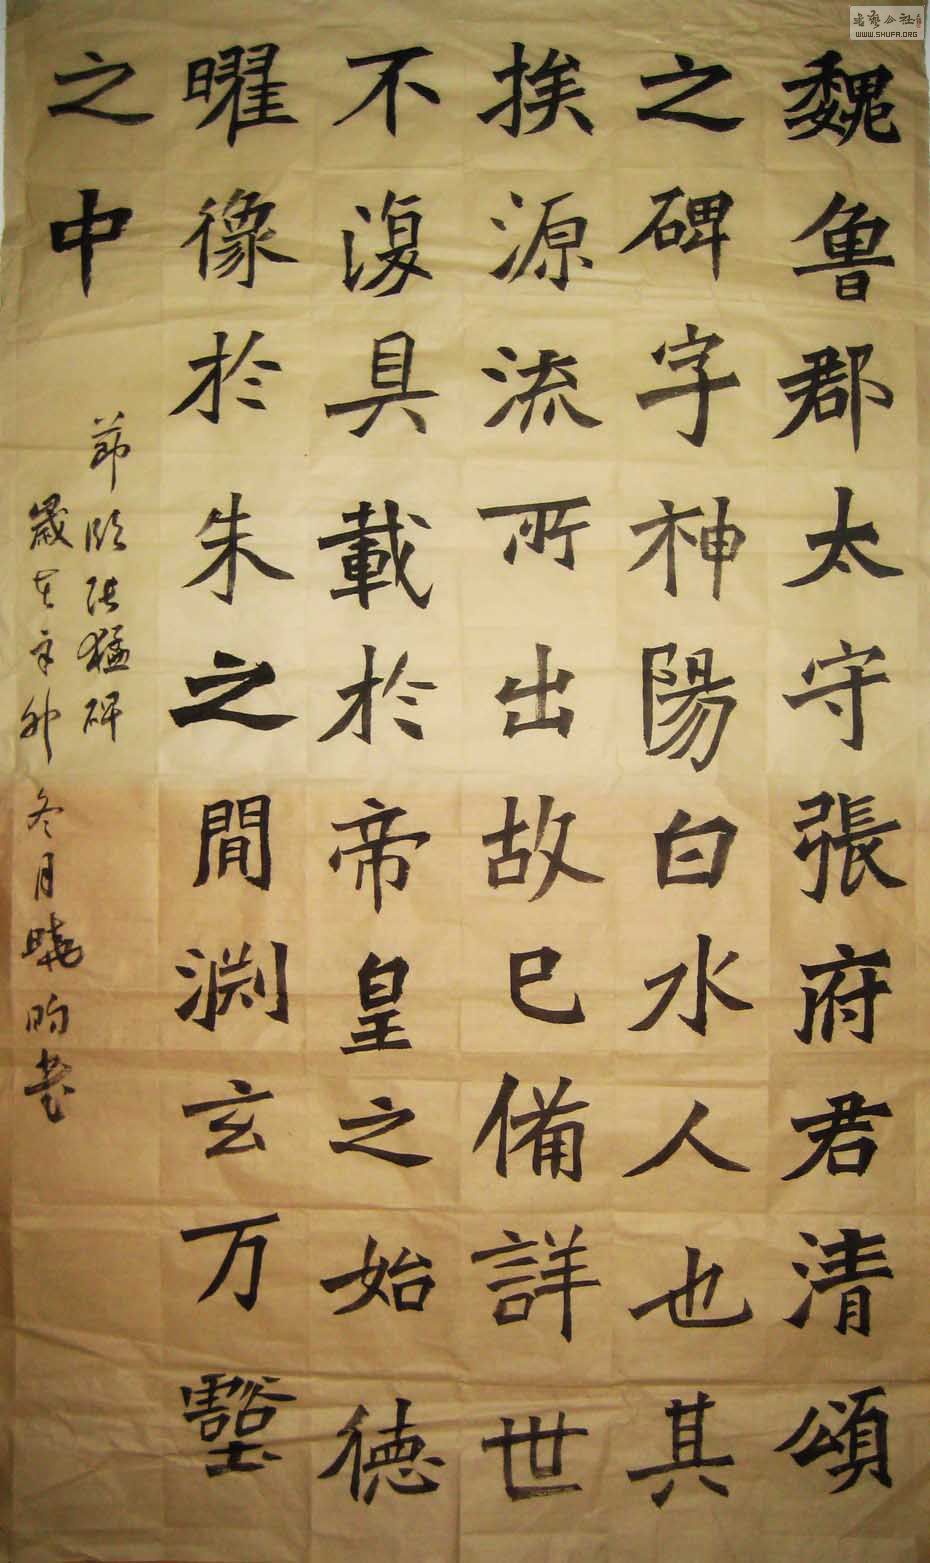 魏魯郡太守張府君清頌
之碑字神陽白水人也其
挨源流所出故已備詳世
不復具載於帝皇之始德
曜像於朱之間淵玄万壑
之中
節臨張猛碑
歲在辛卯冬月曉昀書
书艺公社
WWW.SHUFA.ORG